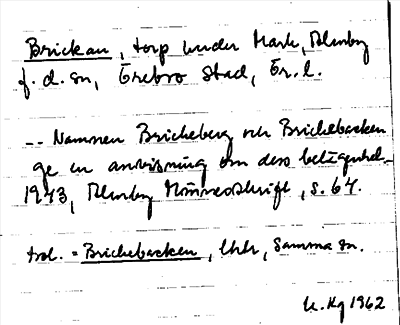 Brickan, torp under Mark, Almby
f. d. sn, Örebro stad, Ör. l.
-- Namnen Brickeberg och Brickebacken
ge en anvisning om dess belägenhet.
1943, Almby Minnesskrift, s. 64.
trol. = Brickebacken, Urkr, samma sn.
U. Kg 1962